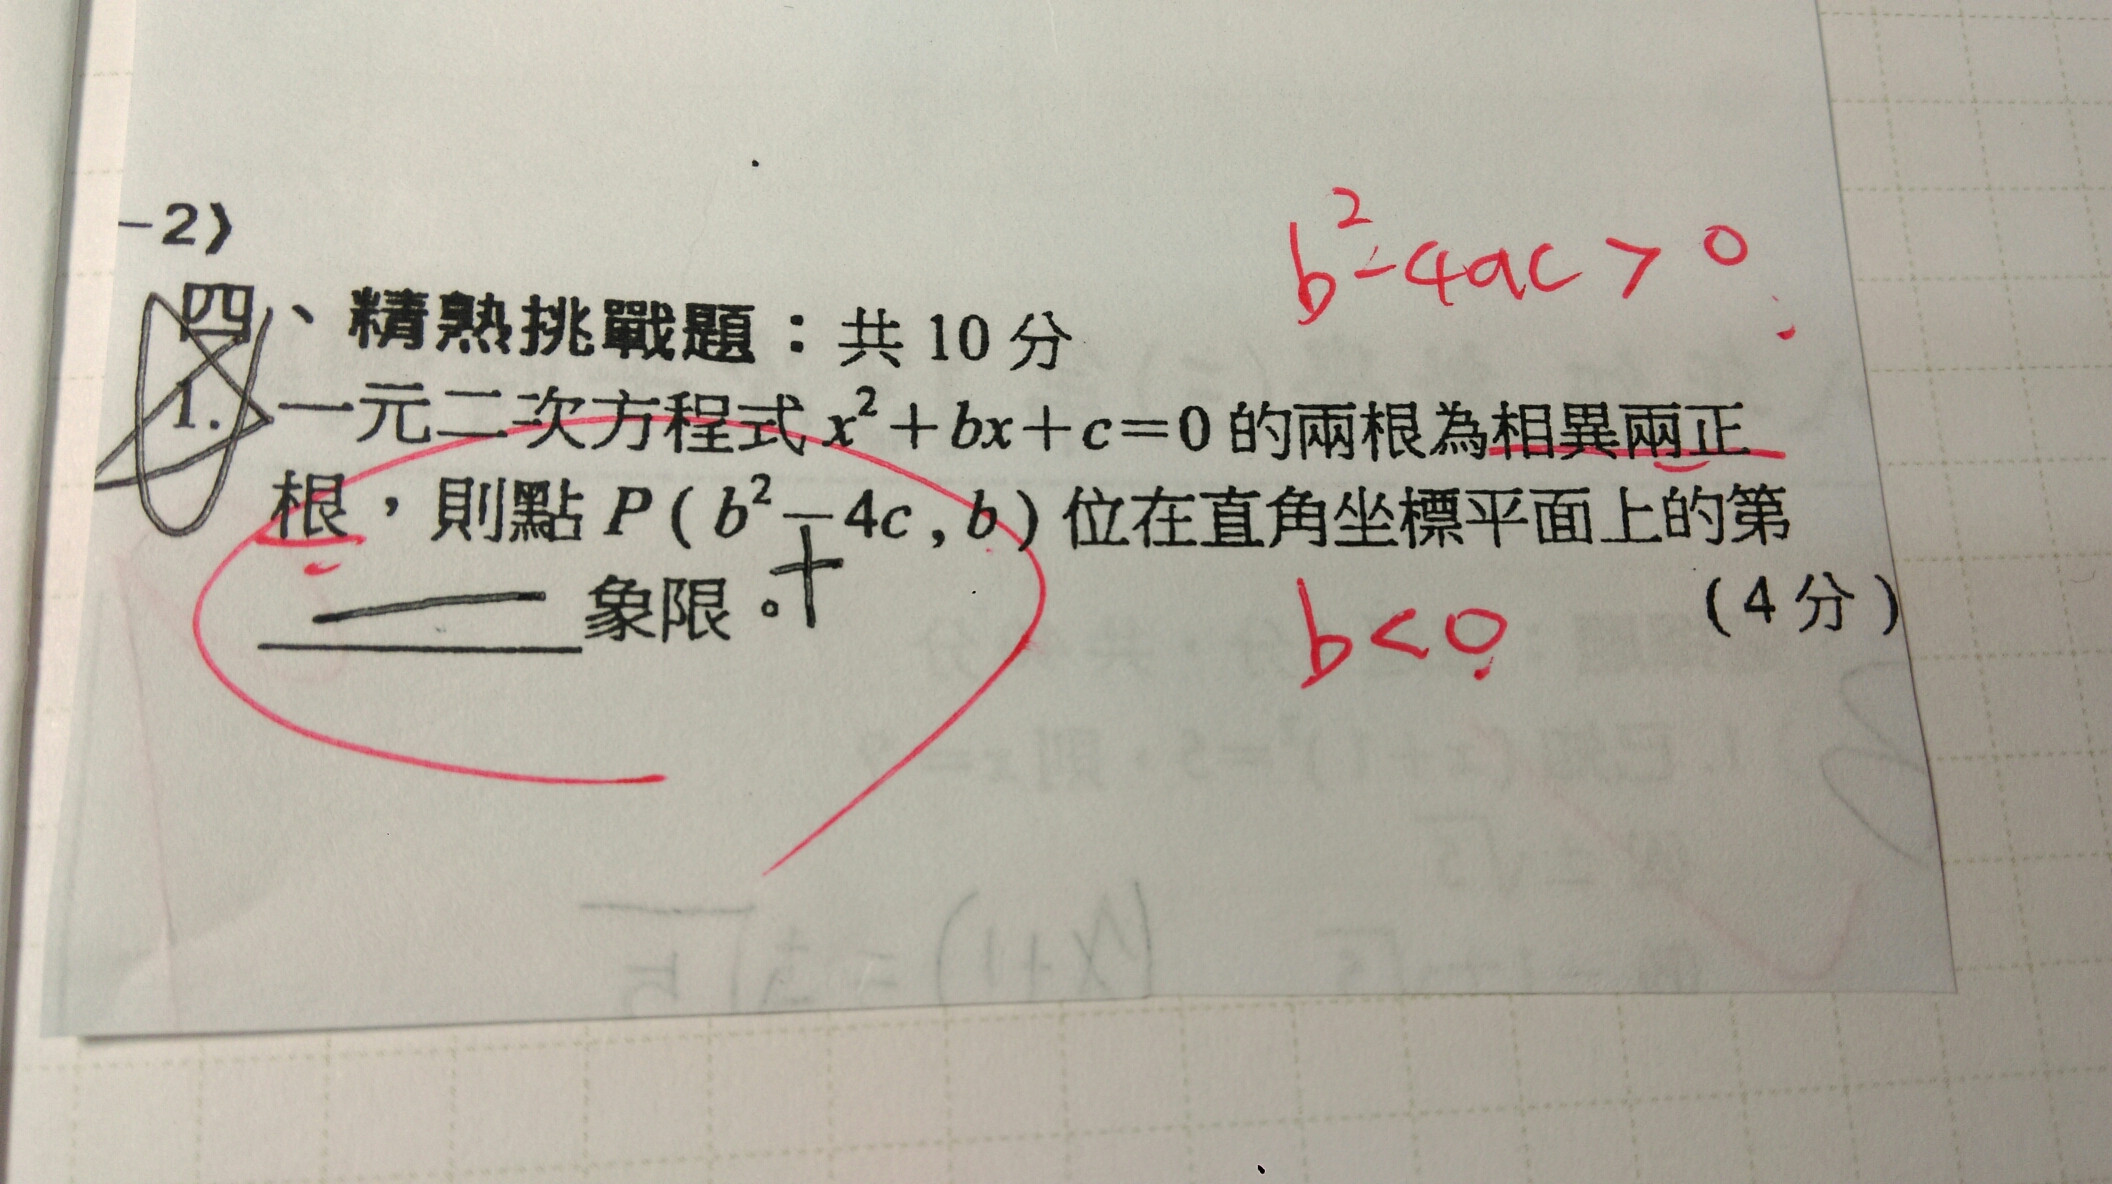 －2)
b²－4ac > 0
四、精熟挑戰題：共 10 分
1. 一元二次方程式 x²＋bx＋c＝0 的兩根為相異兩正
根，則點 P ( b²－4c , b ) 位在直角坐標平面上的第
一 象限。 ＋
(4 分)
b < 0